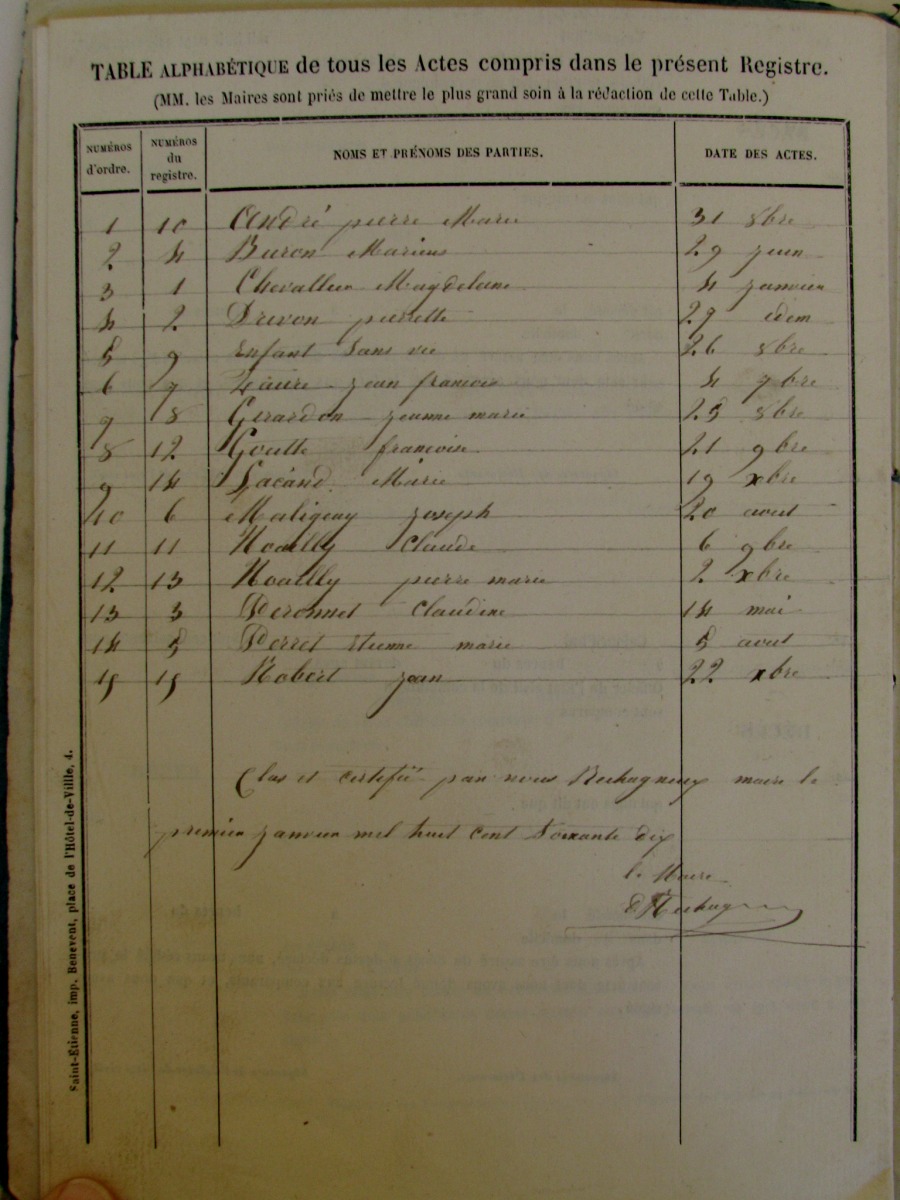 TABLE ALPHABÉTIQUE de tous les Actes compris dans le présent Registre.
(MM. les Maires sont priés de mettre le plus grand soin à la rédaction de cette Table.)
NUMÉROS d'ordre. NUMÉROS du registre. NOMS ET PRÉNOMS DES PARTIES. DATE DES ACTES.
1 10 André pierre Marie 31 8bre
2 4 Buron Marius 29 juin
3 1 Chevallier Magdeleine 4 janvier
4 2 Drevon pierrette 29 idem
5 9 Enfant Sans vie 26 8bre
6 7 jean francois 4 7bre
7 8 Girardon jeanne marie 25 8bre
8 12 Goutte francoise 21 9bre
9 14 Lacand Marie 19 xbre
10 6 Matigny joseph 20 aout
11 11 Noailly Claude 6 9bre
12 13 Noailly pierre marie 2 xbre
13 3 Peronnet Claudine 14 mai
14 5 Perret Etienne marie 5 aout
15 15 Robert jean 22 xbre
Clos et certifié par nous maire le
premier janvier mil huit cent soixante dix
le Maire
Saint-Étienne, imp. Benevent, place de l'Hôtel-de-Ville, 4.